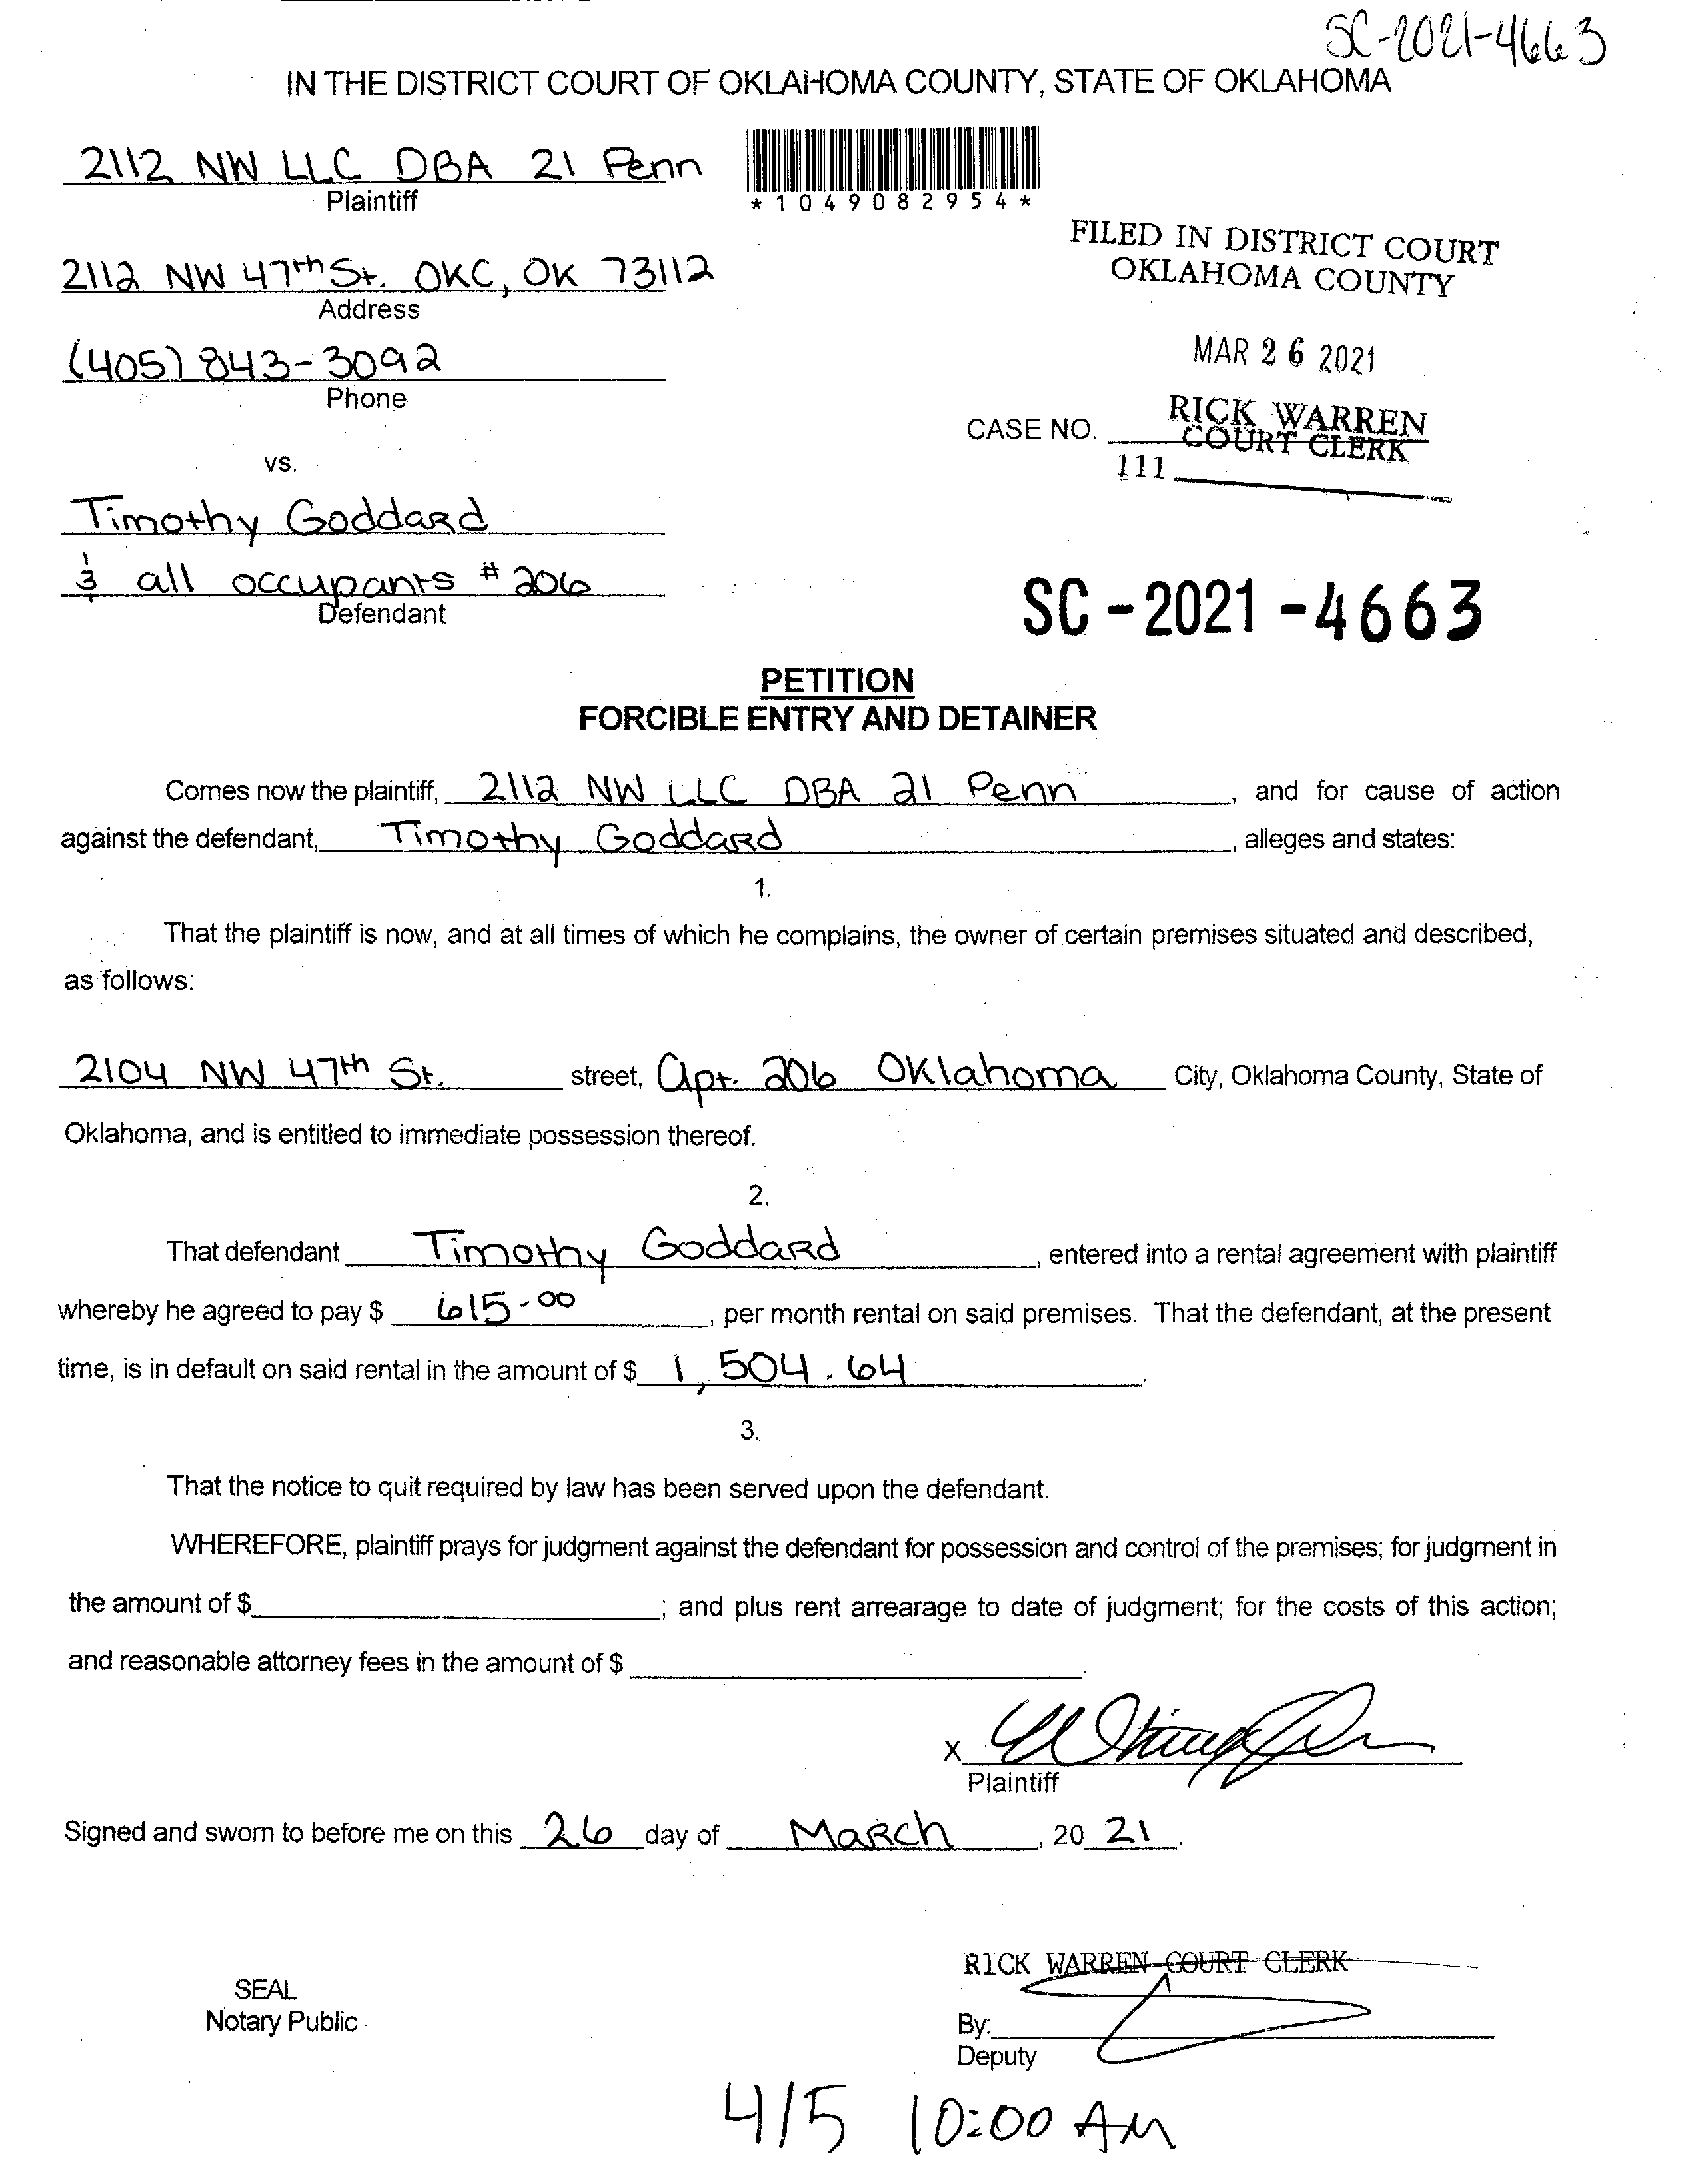 SC-2021-4663
IN THE DISTRICT COURT OF OKLAHOMA COUNTY, STATE OF OKLAHOMA
2112 NW LLC DBA 21 Penn
Plaintiff
*1049082954*
FILED IN DISTRICT COURT
OKLAHOMA COUNTY
2112 NW 47th St. OKC, OK 73112
Address
MAR 26 2021
(405) 843-3092
Phone
RICK WARREN
CASE NO.
COURT CLERK
111
vs.
Timothy Goddard
& all occupants #206
Defendant
SC-2021-4663
PETITION
FORCIBLE ENTRY AND DETAINER
Comes now the plaintiff, 2112 NW LLC DBA 21 Penn, and for cause of action
against the defendant, Timothy Goddard, alleges and states:
1.
That the plaintiff is now, and at all times of which he complains, the owner of certain premises situated and described,
as follows:
2104 NW 47th St. street, apt. 206 Oklahoma City, Oklahoma County, State of
Oklahoma, and is entitled to immediate possession thereof.
2.
That defendant Timothy Goddard, entered into a rental agreement with plaintiff
whereby he agreed to pay $ 615.00, per month rental on said premises. That the defendant, at the present
time, is in default on said rental in the amount of $ 1,504.64.
3.
That the notice to quit required by law has been served upon the defendant.
WHEREFORE, plaintiff prays for judgment against the defendant for possession and control of the premises; for judgment in
the amount of $ ; and plus rent arrearage to date of judgment; for the costs of this action;
and reasonable attorney fees in the amount of $ .
X
Plaintiff
Signed and sworn to before me on this 26 day of March, 20 21.
RICK WARREN COURT CLERK
SEAL
Notary Public
By:
Deputy
4/5 10:00 AM